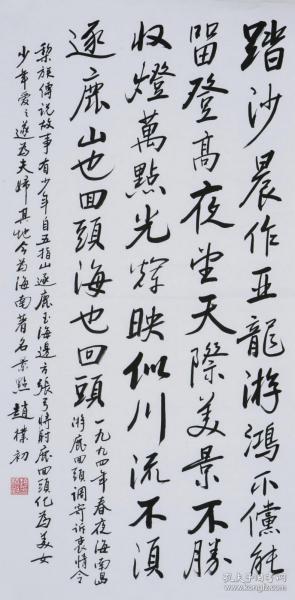 踏沙晨作亚龍游鴻不儻能
留登高夜坐天際美景不勝
收燈萬點光輝映似川流不須
逐鹿山也回頭海也回頭
一九九四年春夜海南島
游鹿回頭調寄訴衷情令
黎族傳說故事有少年自五指山逐鹿至海邊方張弓將射鹿回頭化為美女
少年愛之遂為夫婦其地今為海南著名景點 趙樸初